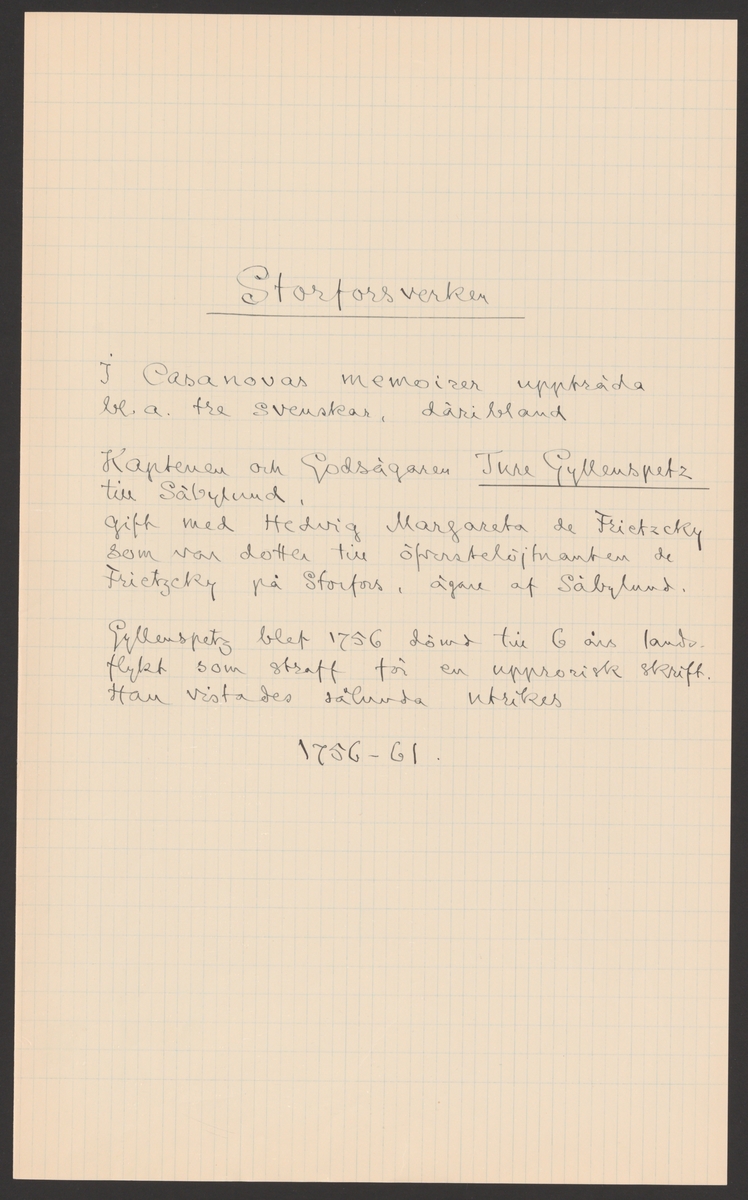 Storforsverken
I Casanovas memoirer uppträda
bl. a. tre svenskar, däribland
Kaptenen och Godsägaren Ture Gyllenspetz
till Säbylund,
gift med Hedvig Margareta de Frietzcky
som var dotter till öfverstelöjtnanten de
Frietzcky på Storfors, ägare af Säbylund.
Gyllenspetz blef 1756 dömd till 6 års lands-
flykt som straff för en upprorisk skrift.
Han vistades sålunda utrikes
1756-61.